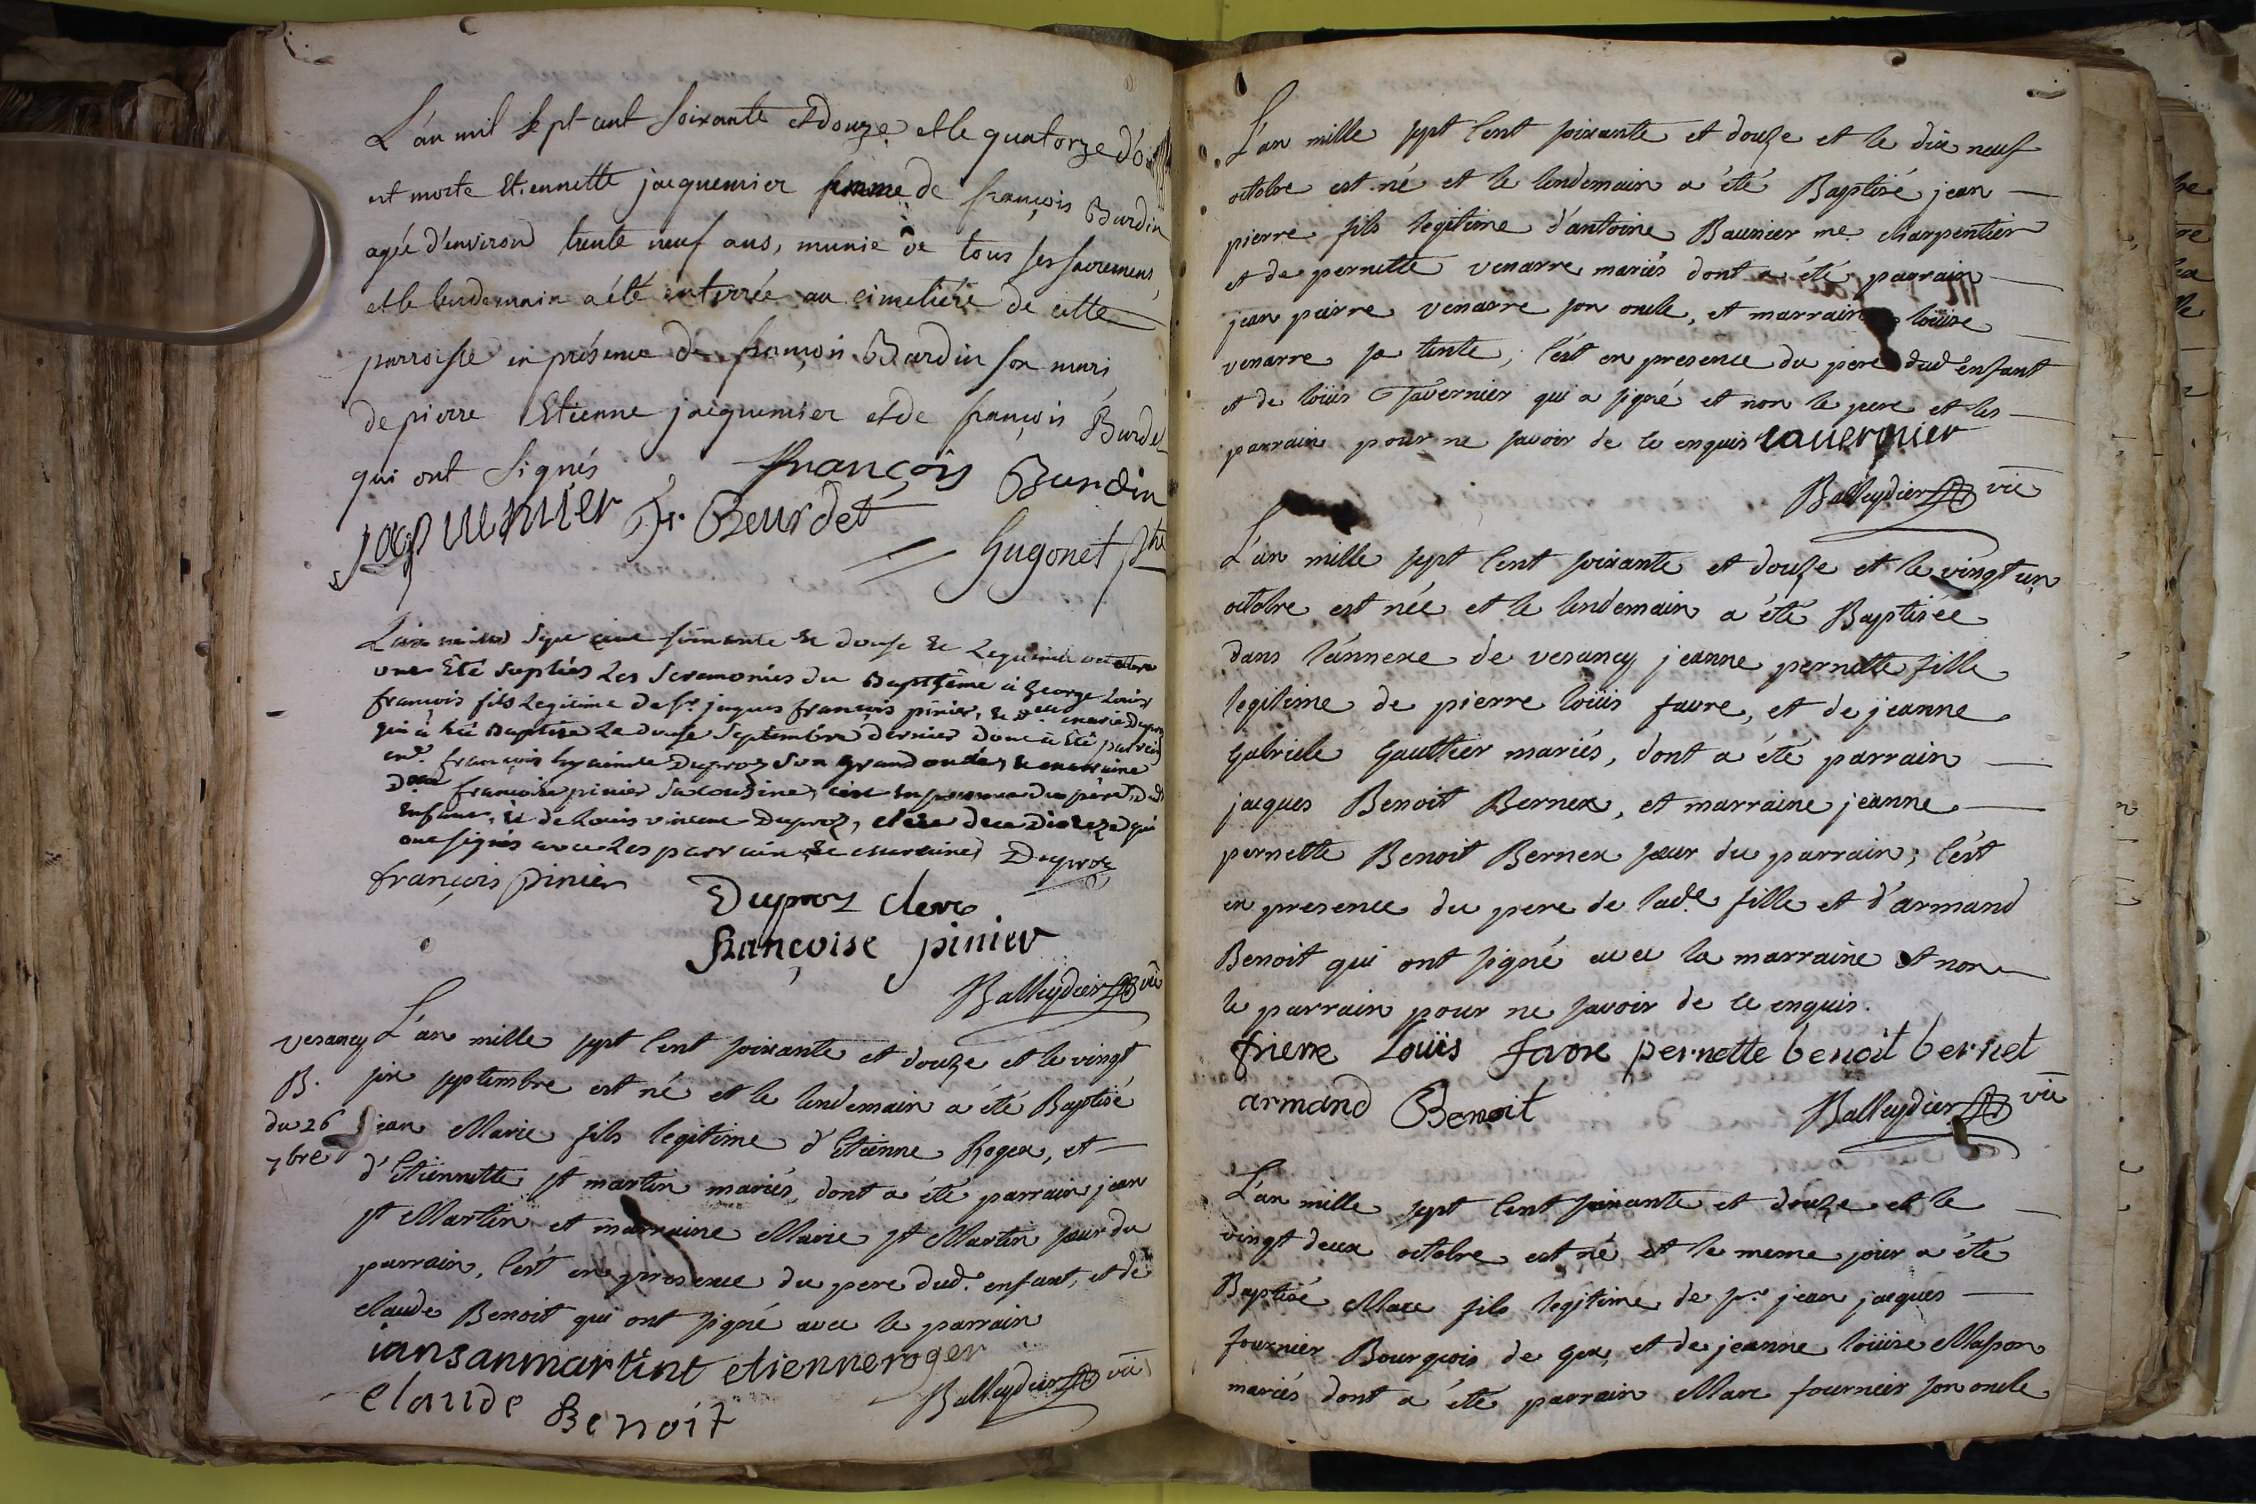 L'an mil sept cent soixante et douze et le quatorze d'
est morte Etiennette jacquemier femme de françois Burdin
agée d'environ trente neuf ans, munie de tous ses sacremens,
et le lendemain a été enterrée au cimetiére de cette
parroisse en présence de françois Burdin son mari
de pierre Etienne jacquemier et de françois Burdet
qui ont signés françois Burdin
jacquemier fr. Beurdet
Hugonet ptre
L'an mille sept cent soixante et douse et le quinze octobre
ont été suplées les seremonies du BaptThême à george Louis
françois fils Legitime de sr. jaques françois pinier, & delle marie Duproz
qui à été Baptisé Le douse septembre dernier dont à été parrain
françois hyacinte Duproz son grand oncle, & marraine
Delle françoise pinier sa cousine, c'est en presence du père dudt
enfant, & de Louis vincent Duproz, clerc du Diocèze qui
ont signés avec Les parrain & marraine Duproz
françois pinier
Duproz clerc
françoise pinier
Balleydier vic
vesancy L'an mille sept Cent soixante et douze et le vingt
B. six septembre est né et le lendemain a été Baptisé
du 26 jean Marie fils legitime d'Etienne Roger, et
7bre d'Etiennette st martin mariés, dont a été parrain jean
st Martin et marraine Marie st Martin sœur du
parrain, C'est en presence du pere dud. enfant, et de
claude Benoit qui ont signé avec le parrain
iansanmartint etienneroger
Balleydier vic
claude Benoit
L'an mille sept Cent soixante et douze et le dix neuf
octobre est né et le lendemain a été Baptisé jean
pierre fils legitime d'antoine Baunier me. charpentier
et de pernette venarre mariés dont a été parrain
jean peirre venarre son oncle, et marraine loüise
venarre sa tente; C'est en presence du pere dud enfant
et de loüis Tavernier qui a signé et non le pere et les
parrain pour ne savoir de ce enquis tavernier
Balleydier vic
L'an mille sept Cent soixante et douze et le vingt un
octobre est née et le lendemain a été Baptisée
dans l'annexe de vesancy jeanne pernette fille
legitime de pierre loüis favre, et de jeanne
gabriele gaultier mariés, dont a été parrain
jacques Benoit Bernex, et marraine jeanne
pernette Benoit Bernex sœur du parrain; C'est
en presence du pere de lade fille et d'armand
Benoit qui ont signé avec la marraine et non
le parrain pour ne savoir de ce enquis.
pierre Loüis favre pernette benoit bernet
armand Benoit
Balleydier vic
L'an mille sept Cent soixante et douze et le
vingt deux octobre est né et le meme jour a été
Baptisé Marc fils legitime de sr. jean jacques
fournier Bourgeois de gex, et de jeanne loüise Masson
mariés dont a été parrain Marc fournier son oncle